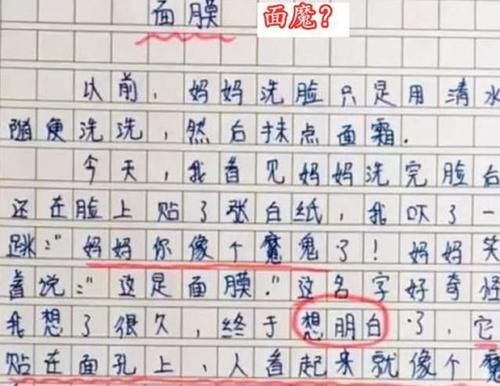 面膜 面魔?
以前,妈妈洗脸只是用清水
随便洗洗,然后抹点面霜.
今天,我看见妈妈洗完脸后
还在脸上贴了张白纸,我吓了一
跳:"妈妈你像个魔鬼了!妈妈笑
着说:"这是面膜."这名字好奇怪
我想了很久,终于想明白了,它
贴在面孔上,人看起来就像个魔